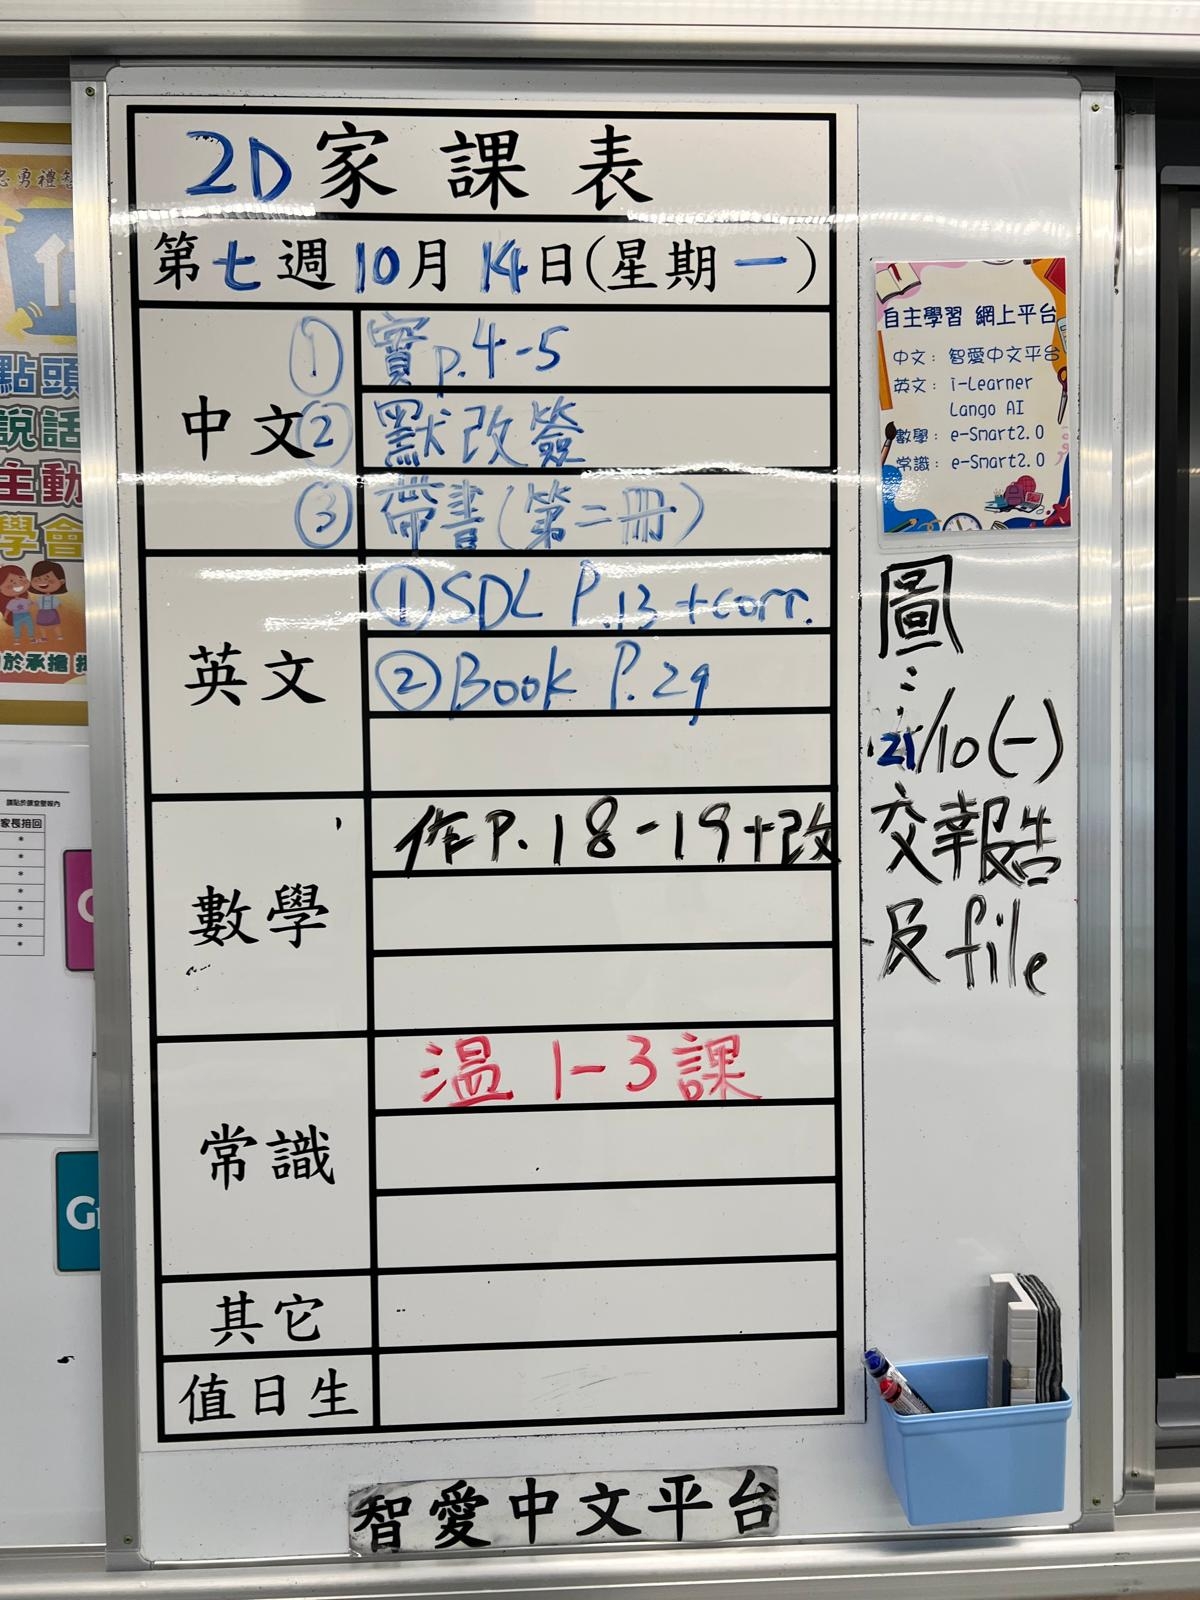 2D家課表
第七週10月14日(星期一)
中文
① 實p.4-5
② 默改簽
③ 帶書(第二冊)
英文
① SDL P.13 +corr.
② Book P.29
數學
作P.18-19+改
常識
溫 1-3課
其它
值日生
智愛中文平台
自主學習 網上平台
中文：智愛中文平台
英文：i-Learner
Lango AI
數學：e-Smart2.0
常識：e-Smart2.0
圖：
21/10(一)
交報告
及file
點頭
說話
主動
學會
家長拍回